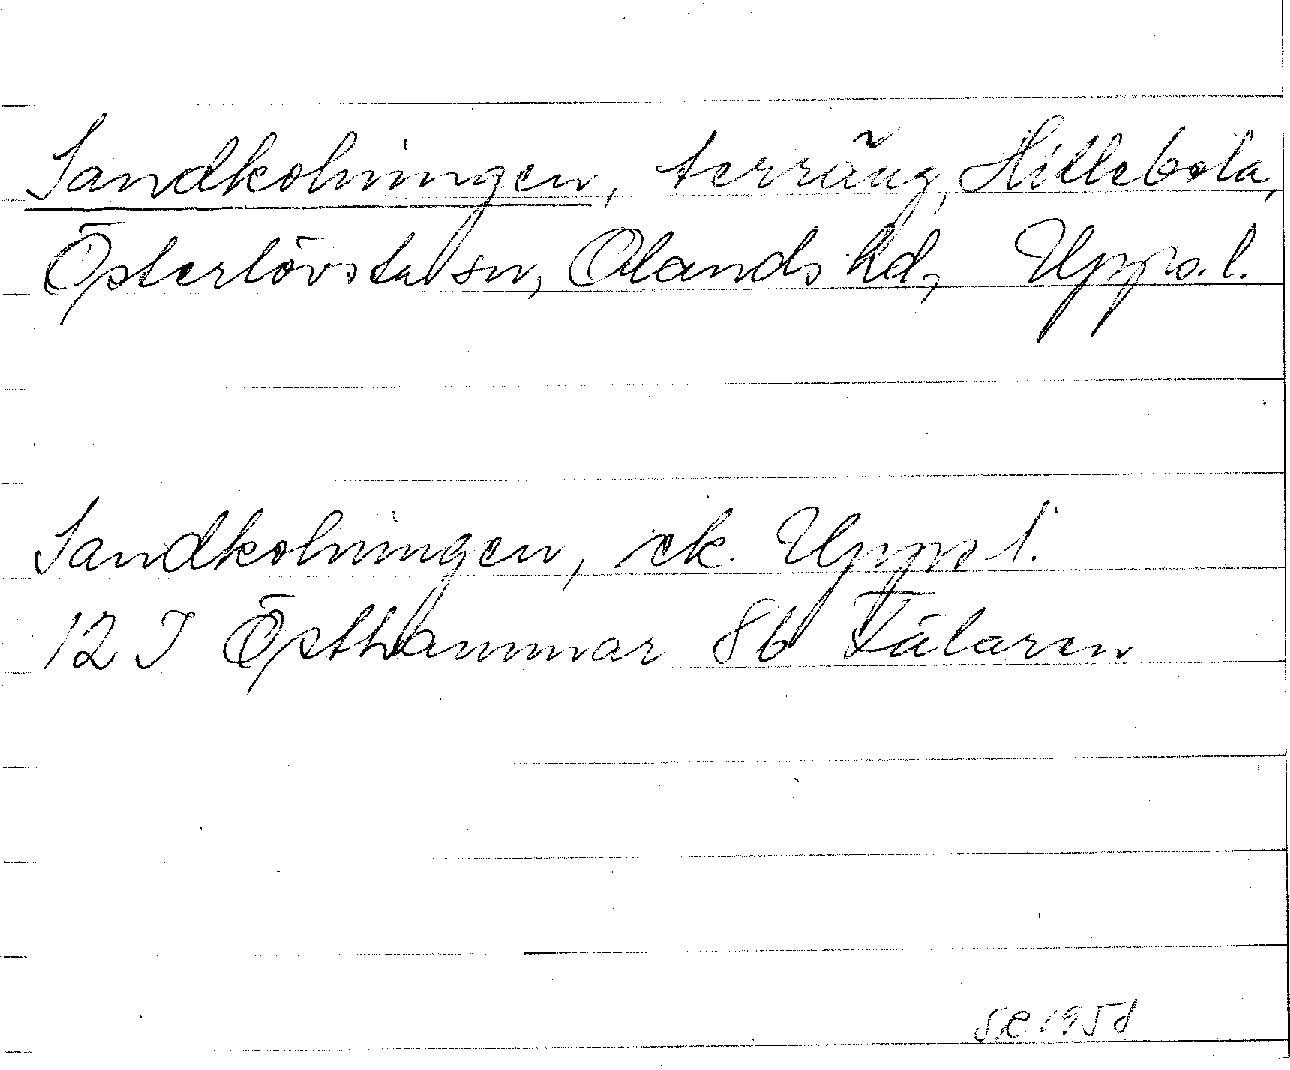 Sandkolningen, terräng, Hillebola,
Österlövsta sn, Olands hd, Upps. l.
Sandkolningen, ek. Upps l.
12 I Östhammar 8b Fälaren
S.E 1958